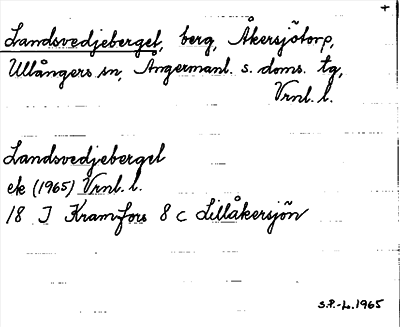 +
Landsvedjeberget, berg, Åkersjötorp,
Ullångers sn, Ångermanl. s. doms. tg,
Vrnl. l.
Landsvedjeberget
ek (1965) Vrnl. l.
18 J Kramfors 8 c Lillåkersjön
S.P.-L. 1965